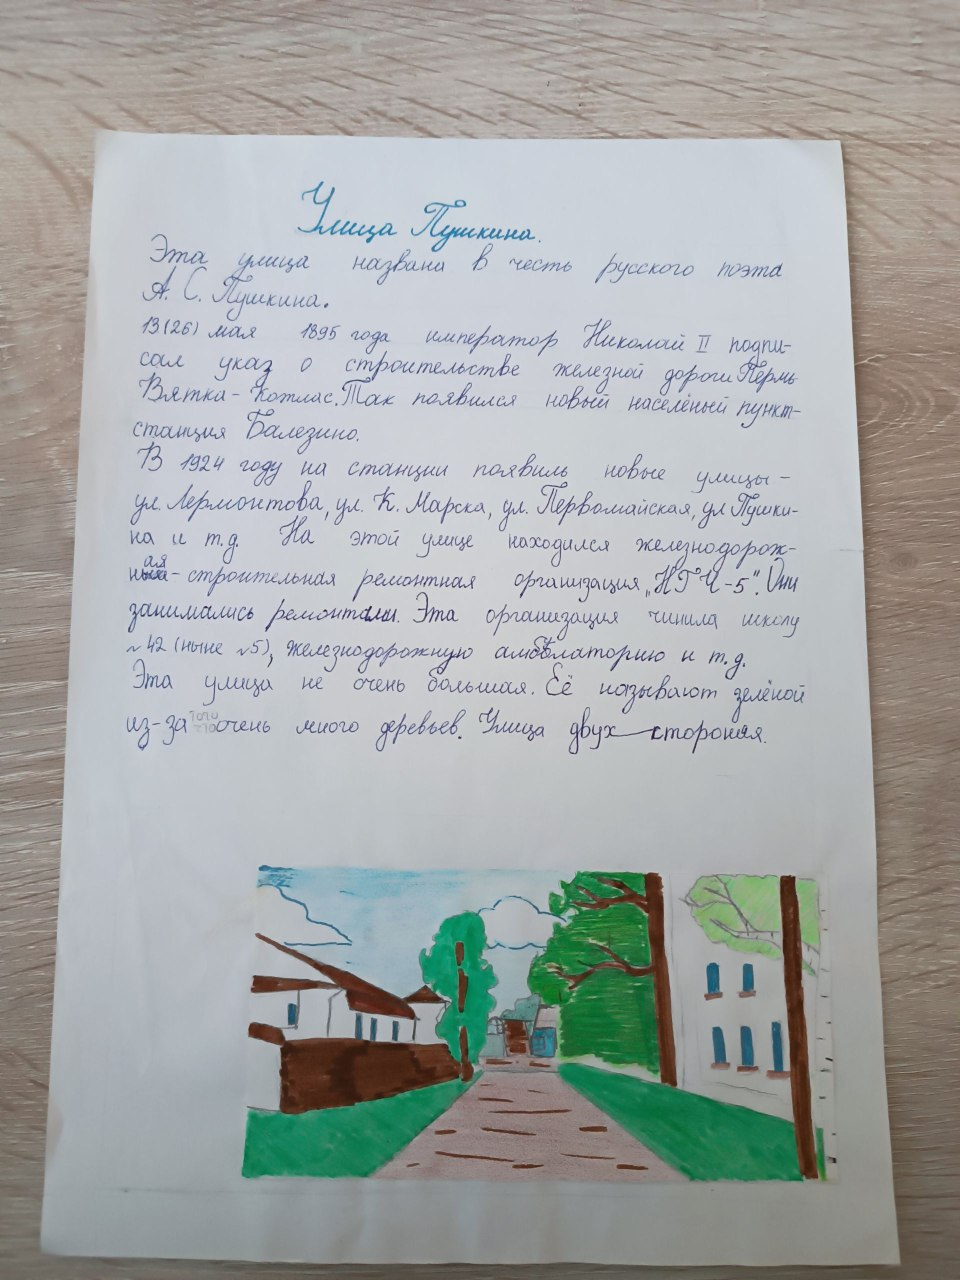 Улица Пушкина.
Эта улица названа в честь русского поэта
А. С. Пушкина.
13(26) мая 1895 года император Николай II подпи-
сал указ о строительстве железной дороги Пермь
Вятка-Котлас. Так появился новый населёный пункт-
станция Балезино.
В 1924 году на станции появиль новые улицы-
ул. Лермонтова, ул. К. Марска, ул. Первомайская, ул Пушки-
на и т.д. На этой улице находился железнодорож-
ная-строительная ремонтная организация „НГЧ-5". Они
занимались ремонтами. Эта организация чинила школу
№42 (ныне №5), железнодорожную амбулаторию и т.д.
Эта улица не очень большая. Её называют зелёной
из-за того что очень много деревьев. Улица двух сторонняя.